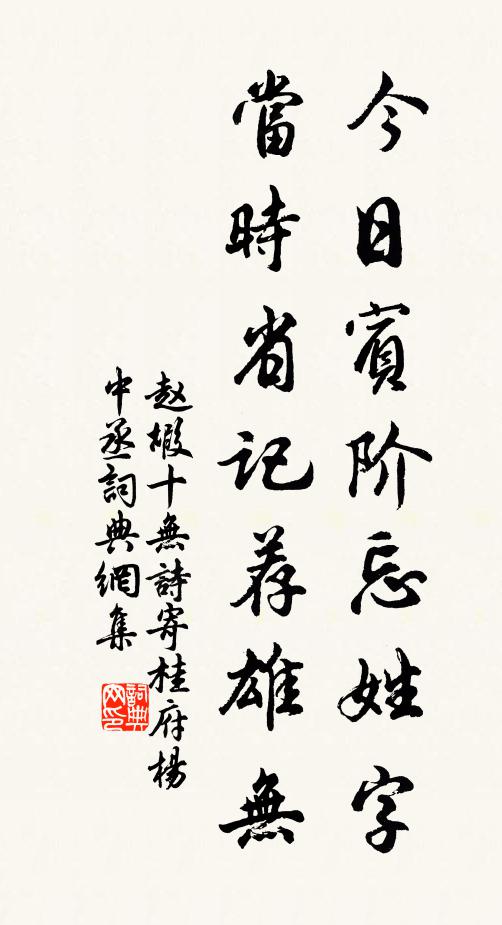 今日賓阶忘姓字
當時省记荐雄無
赵嘏十無詩寄桂府楊
中丞詞典網集
詞典网印